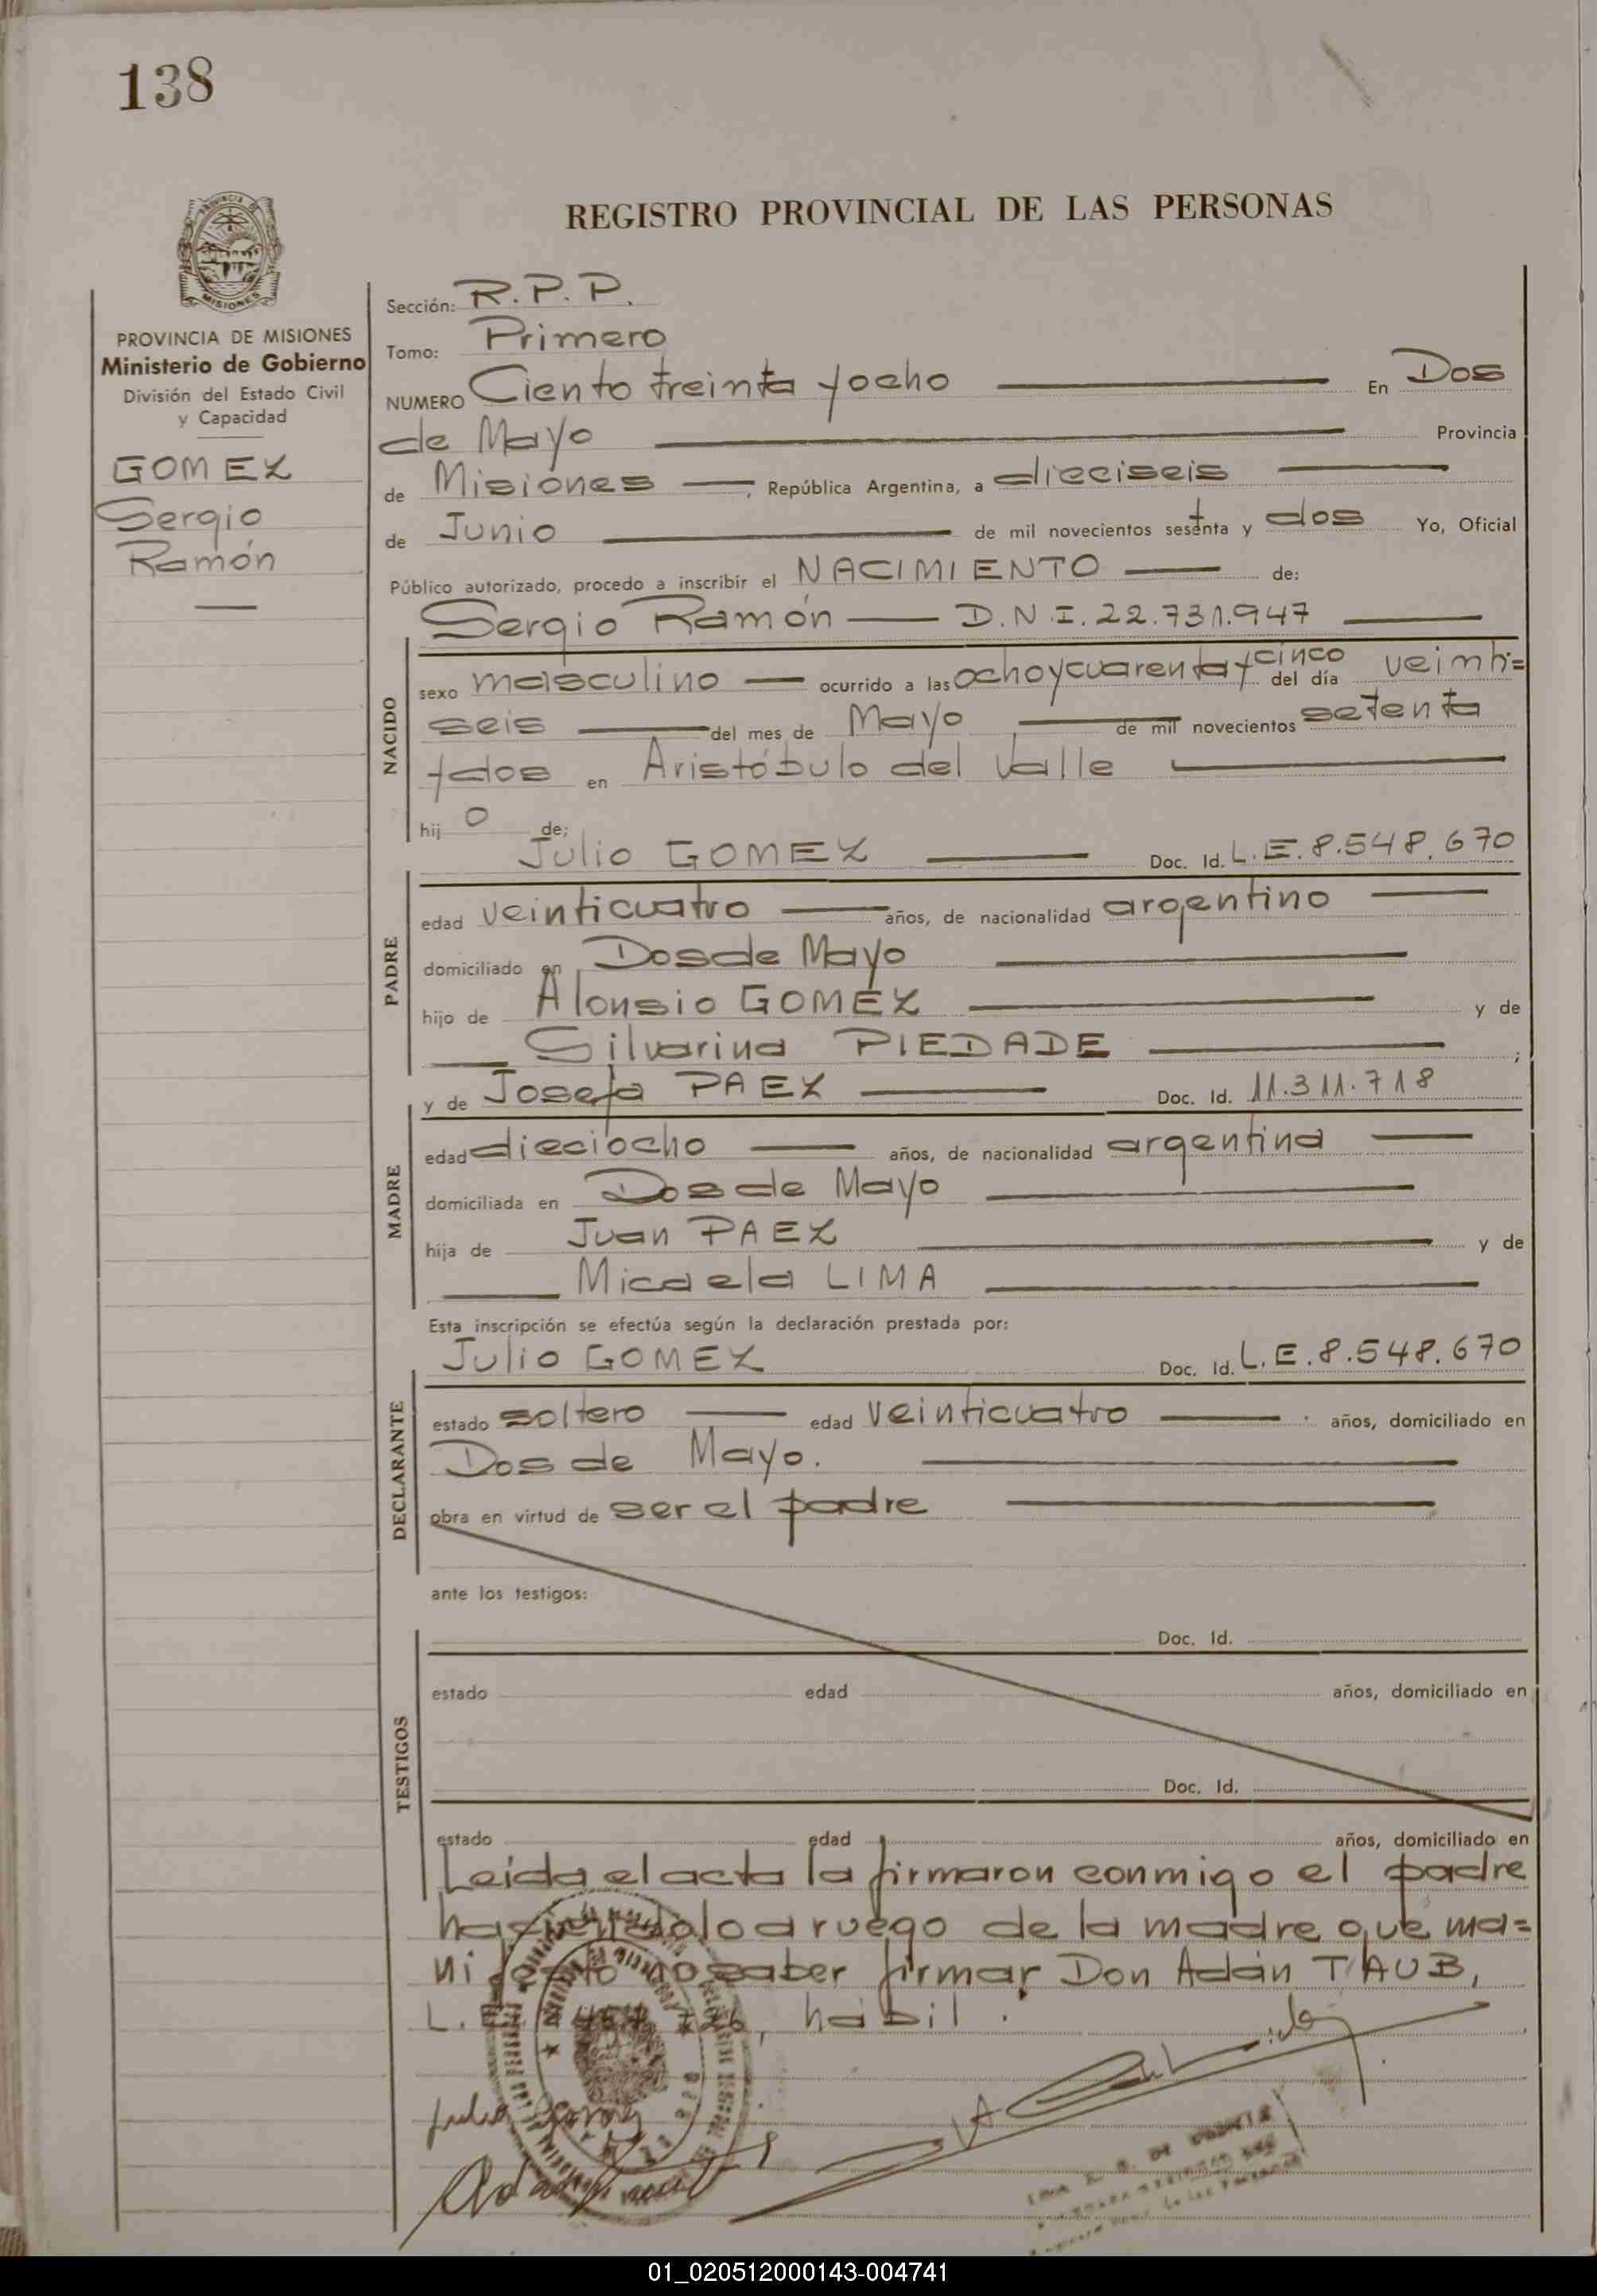 138
REGISTRO PROVINCIAL DE LAS PERSONAS
PROVINCIA DE MISIONES
Ministerio de Gobierno
División del Estado Civil
y Capacidad
GOMEZ
Sergio
Ramón
Sección: R.P.P.
Tomo: Primero
NUMERO Ciento treinta y ocho En Dos
de Mayo Provincia
de Misiones, República Argentina, a dieciseis
de Junio de mil novecientos setenta y dos Yo, Oficial
Público autorizado, procedo a inscribir el NACIMIENTO de:
Sergio Ramón — D.N.I. 22.731.947
NACIDO
sexo masculino ocurrido a las ocho y cuarenta y cinco del día veinti=
seis del mes de Mayo de mil novecientos setenta
y dos en Aristóbulo del Valle
hij o de:
Julio GOMEZ Doc. Id. L.E. 8.548.670
PADRE
edad veinticuatro años, de nacionalidad argentino
domiciliado en Dos de Mayo
hijo de Alonsio GOMEZ y de
Silvarina PIEDADE ;
y de Josefa PAEZ Doc. Id. 11.311.718
MADRE
edad dieciocho años, de nacionalidad argentina
domiciliada en Dos de Mayo
hija de Juan PAEZ y de
Micaela LIMA
Esta inscripción se efectúa según la declaración prestada por:
Julio GOMEZ Doc. Id. L.E. 8.548.670
DECLARANTE
estado soltero edad veinticuatro años, domiciliado en
Dos de Mayo.
obra en virtud de ser el padre
ante los testigos:
Doc. Id.
TESTIGOS
estado edad años, domiciliado en
Doc. Id.
estado edad años, domiciliado en
Leída el acta la firmaron conmigo el padre
haciendolo a ruego de la madre que ma=
nifesto no saber firmar Don Adán TAUB,
L.E. hábil.
01_020512000143-004741